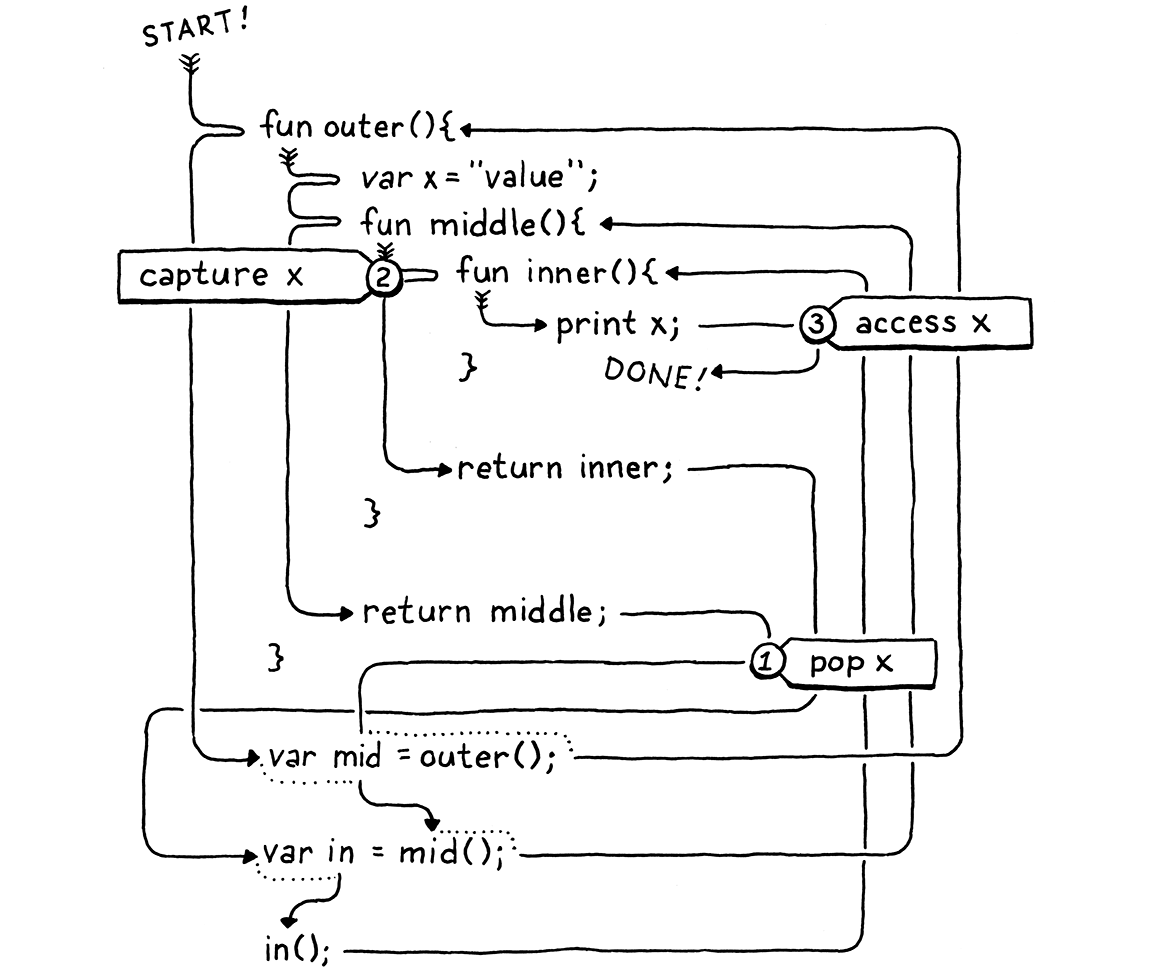 START!
fun outer(){
var x = "value";
fun middle(){
capture x
2
fun inner(){
print x;
3
access x
}
DONE!
return inner;
}
return middle;
}
1
pop x
var mid = outer();
var in = mid();
in();